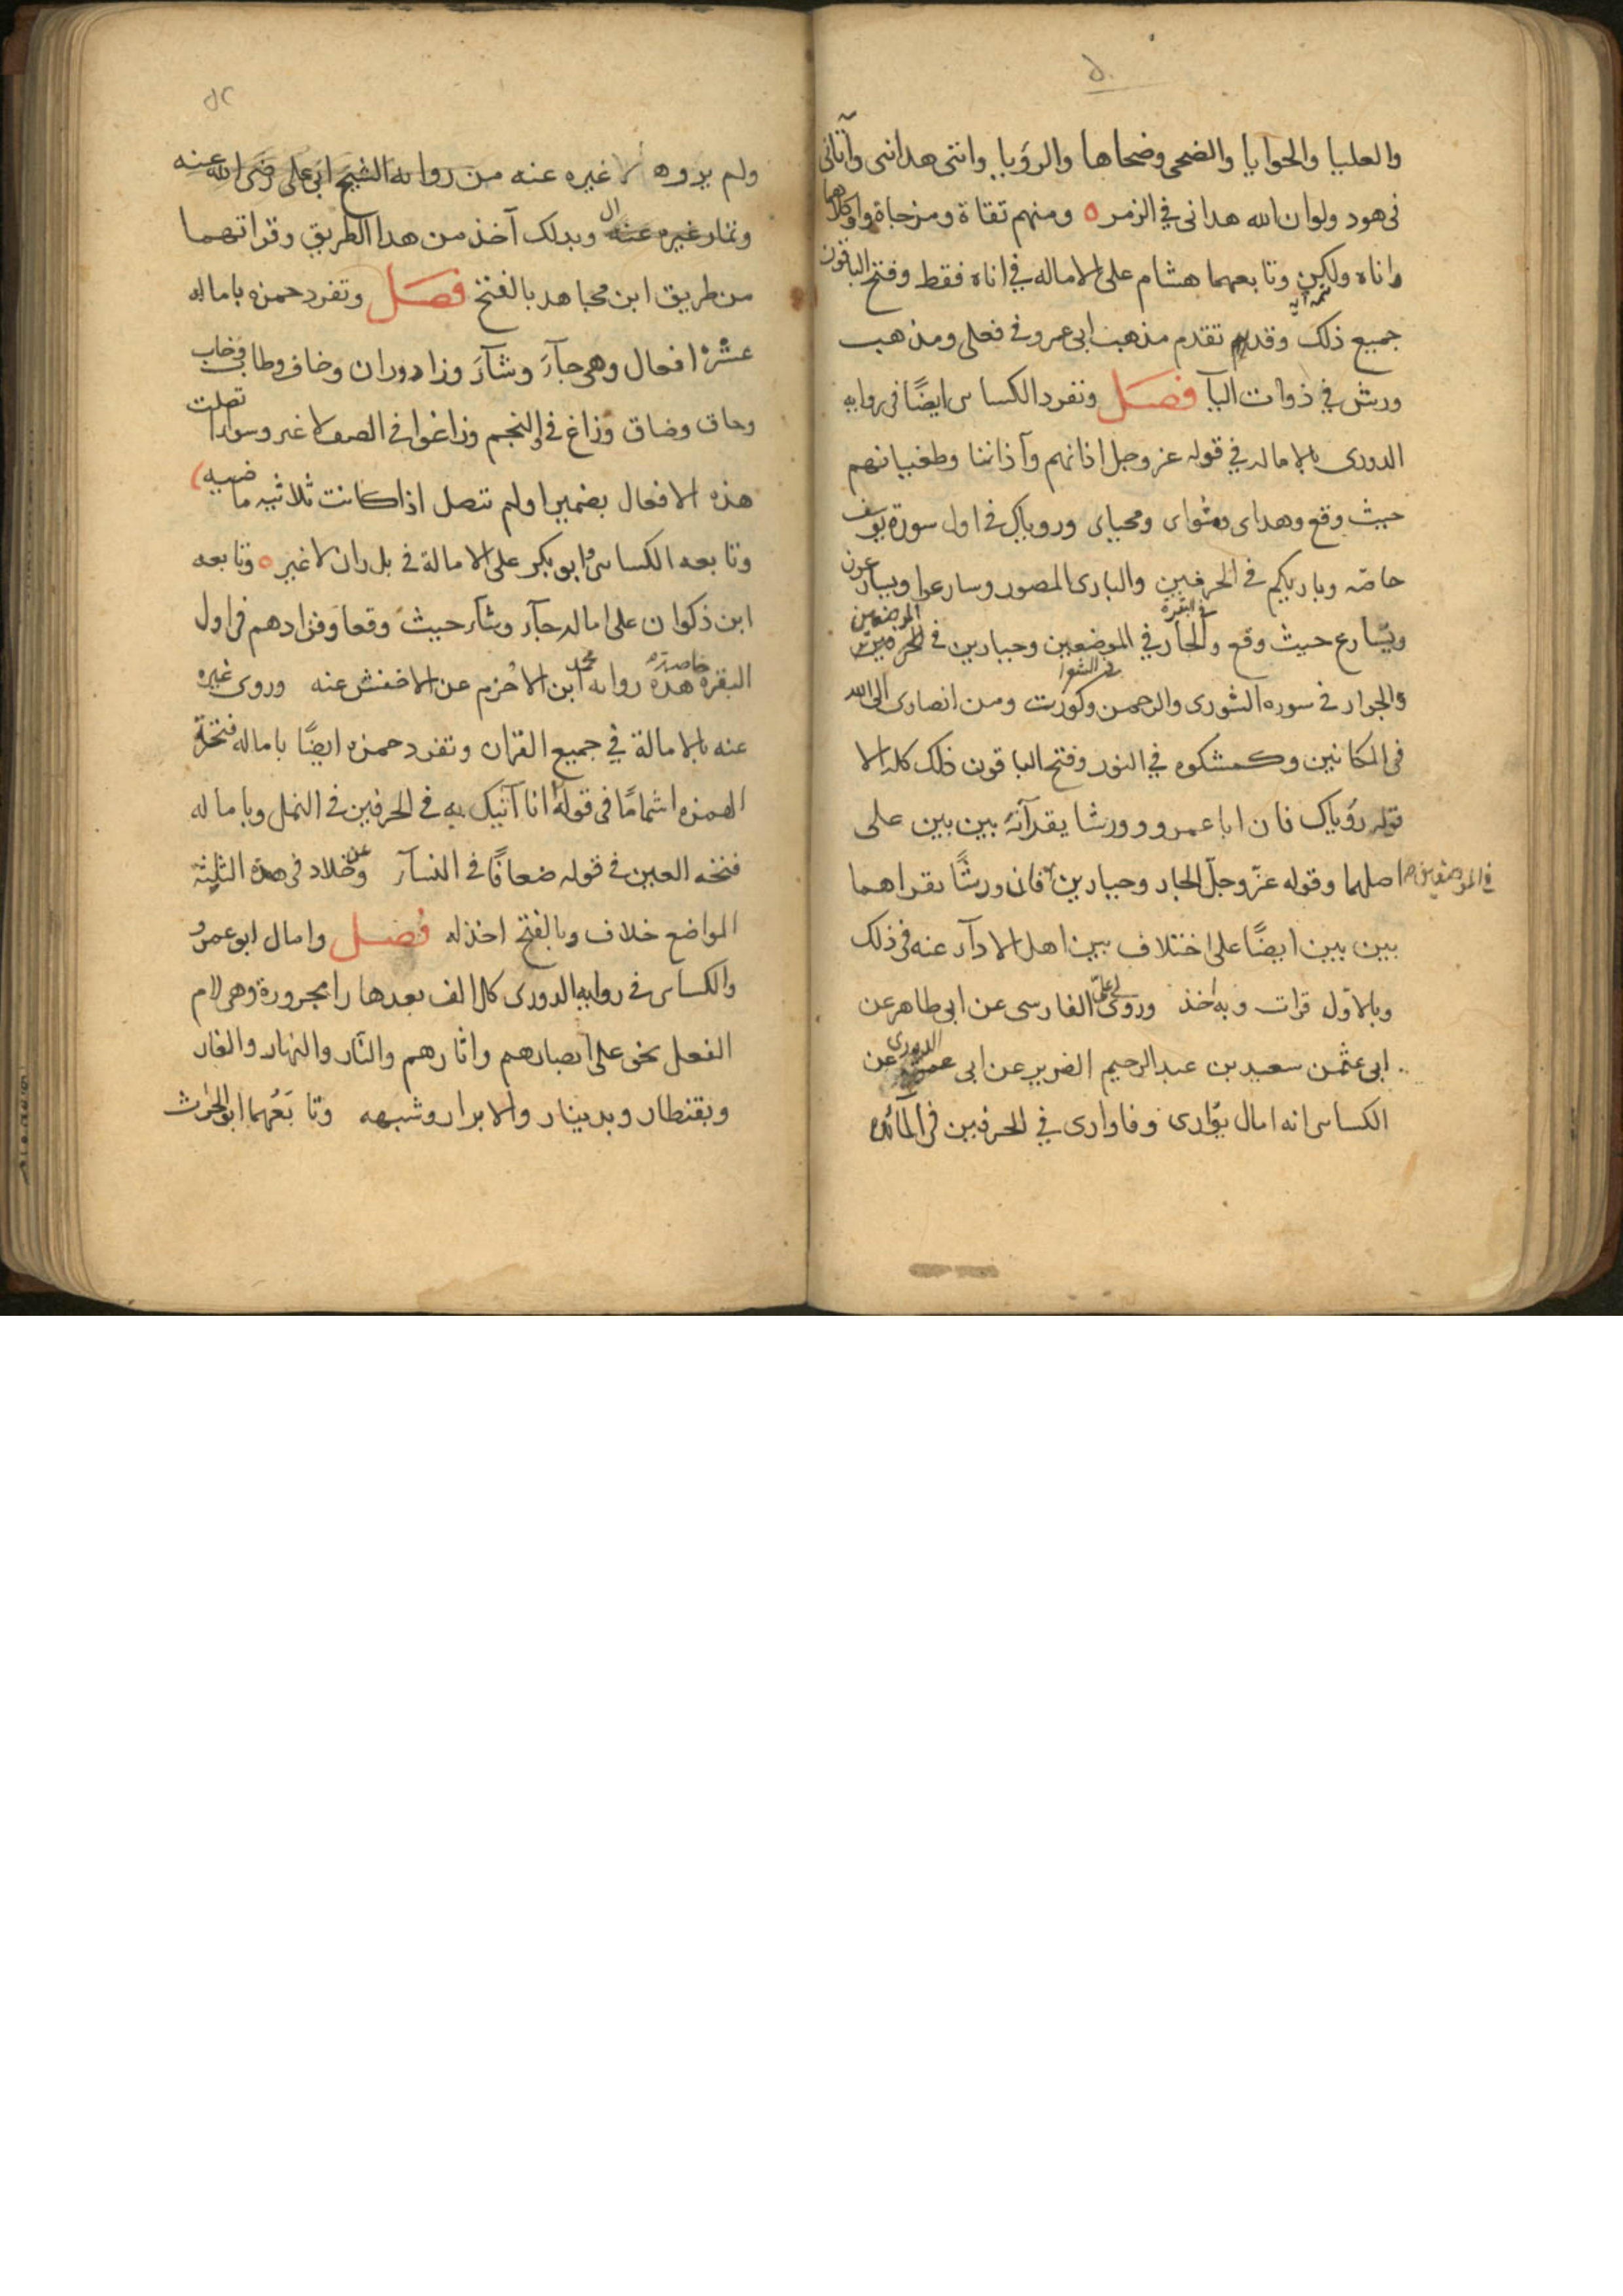 والعليا والحوايا والضحى وضحاها والرؤيا وانني هداني وآتاني
في هود ولو ان الله هداني في الزمر ه ومنهم تقاة ومزجاة واو كلاهما
واناه ولكن وتابعهما هشام على الاماله في اناه فقط وفتح الباقون
جميع ذلك وقد تقدم مذهب ابي عمرو في فعلى ومذهب
ورش في ذوات اليا فصل وتفرد الكساى ايضًا في روايه
الدورى بالاماله في قوله عز وجل اذانهم وآذاننا وطغيانهم
حيث وقع وهداى ومثواى ومحياى وروياك في اول سورة يوسف
خاصه وباريكم في الحرفين والبارى المصور وسارعوا ويسارعون
ويسارع حيث وقع والجار في الموضعين وجبارين في الحرفين
في البقرة
الموضعين
والجوار في سوره الشورى والرحمن وكورت ومن انصارى الى الله
في المكانين وكمشكوه في النور وفتح الباقون ذلك كله الا
قوله رؤياك فان ابا عمرو وورشا يقرآنه بين بين على
اصلهما وقوله عزّ وجلّ الجار وجبارين فان ورشًا يقراهما
في الموضعين
بين بين ايضًا على اختلاف بين اهل الادآء عنه في ذلك
وبالاوّل قرات وبه اخذ وروى لى على الفارسى عن ابي طاهر عن
ابي عثمن سعيد بن عبد الرحيم الضرير عن ابي عمر الدورى عن
الكساى انه امال يوارى وفاوارى في الحرفين في المآئده
٥٢
ولم يروه لا غيره عنه من روايه الشيخ ابي على رضى الله عنه
غيره عنه وبذلك آخذ من هذا الطريق وقراتهما
من طريق ابن مجاهد بالفتح فصل وتفرد حمزه باماله
عشرة افعال وهى جآءَ وشآءَ وزاد وران وخاف وطاب وخاب
وحاق وضاق وزاغ في والنجم وزاغوا في الصف لا غير وسوآء اتصلت
هذه الافعال بضمير او لم تتصل اذا كانت ثلاثيه ماضيه
وتابعه الكساى وابو بكر على الامالة في بل ران لا غير ه وتابعه
ابن ذكوان على اماله جآء وشآء حيث وقعا وفزادهم في اول
البقره خاصة هذه روايه محمد ابن الاخرم عن الاخفش عنه وروى غيره
عنه بالامالة في جميع القران وتفرد حمزه ايضًا باماله فتحة
الهمزه اشمامًا في قوله انا آتيك به في الحرفين في النمل وباماله
فتحه العين في قوله ضعافًا في النسآء وعن خلاد في هذه الثلثة
المواضع خلاف وبالفتح اخذ له فصل وامال ابو عمرو
والكساى في روايه الدورى كل الف بعدها را مجرورة وهي لام
الفعل نحو على ابصارهم واثارهم والنّار والنهار والغار
وبقنطار وبدينار والابرار وشبهه وتابَعَهما ابو الحرث